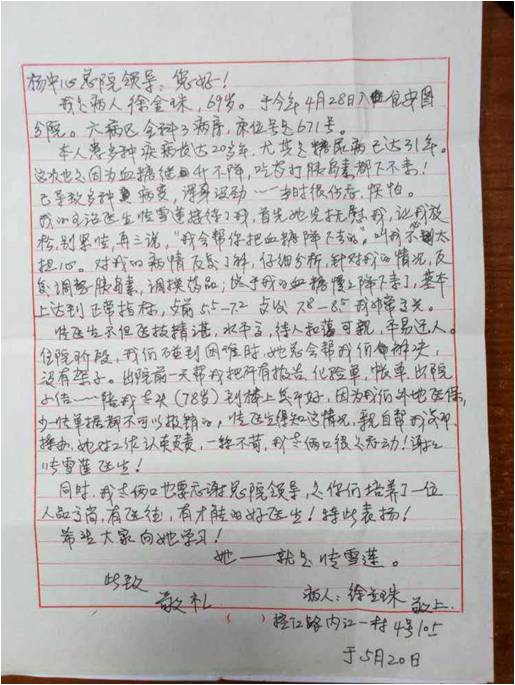 杨中心总院领导：您好！
我是病人徐金珠，69岁。于今年4月28日入住安图
分院。六病区全科3病房，床位号是671号。
本人患多种疾病长达20多年，尤其是糖尿病已达31年。
这次也是因为血糖继升不降，吃药打胰岛素都下不来！
已导致多种病变，浑身没劲……当时很伤感，怕怕。
我的主治医生 雪莲接待了我，首先她先抚慰我，让我放
松，别紧张，再三说，“我会帮你把血糖降下去的”，叫我不太
担心。对我的病情反复了解，仔细分析，针对我的情况，反
复调整胰岛素，调换药品，终于我的血糖慢慢降下来了，基本
上达到正常指标，女前5.5—7.2 女后7.8—8.5 我非常开心。
医生不但医技精湛，水平高，待人和蔼可亲，平易近人。
住院阶段，我们碰到困难时，她总会帮我们解决，
没有架子。出院前一天帮我把所有报告、化验单，帐单，出院
小结……陪我老头（78岁）到楼上盖好，因为我们外地医保，
少一张单据都不可以报销的。 医生得知这情况，亲自帮我
操办，她对工作认真负责，一丝不苟，我老俩口很感动！谢谢
雪莲医生！
同时，我老俩口也要感谢总院领导，是你们培养了一位
人品高尚，有医德，有才能的好医生！特此表扬！
希望大家向她学习！
她——就是 雪莲。
此致
敬礼
病人：徐金珠 敬上
控江路内江一村4号105
于5月20日